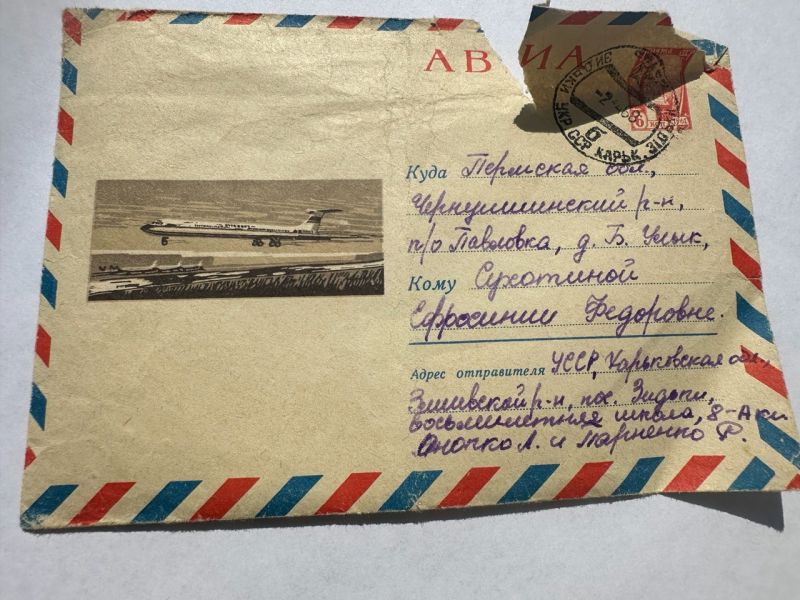 АВИА
УКР ССР ХАРЬК.
6
Куда Пермская обл.,
Чернушинский р-н,
п/о Павловка, д. Б. Улык,
Кому Сухотиной
Ефросинии Федоровне.
Адрес отправителя УССР, Харьковская обл.,
Змиевской р-н, пос. Зидьки,
восьмилетняя школа, 8-А кл
Онопко Л. и Парненко Ф.